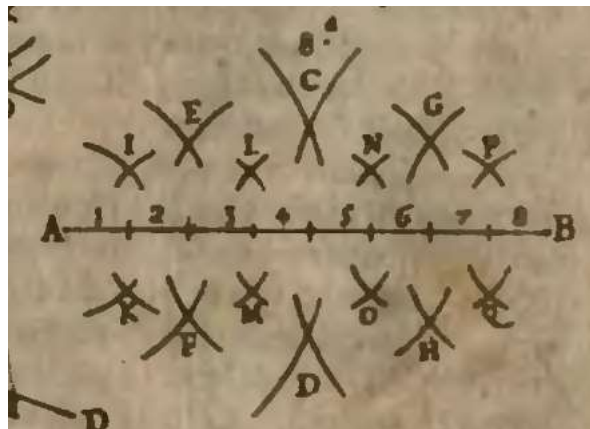 8.
C
E G
I L N P
A 1 2 3 4 5 6 7 8 B
K M O Q
F H
D
D